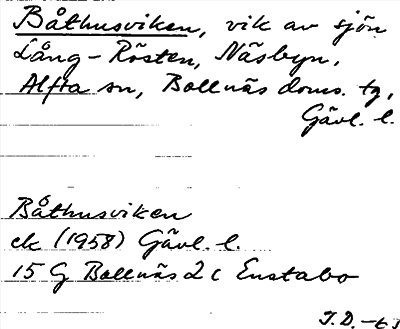 Båthusviken, vik av sjön
Lång-Rösten, Näsbyn,
Alfta sn, Bollnäs doms. tg,
Gävl. l.
Båthusviken
ek (1958) Gävl. l.
15 G Bollnäs 2 c Enstabo